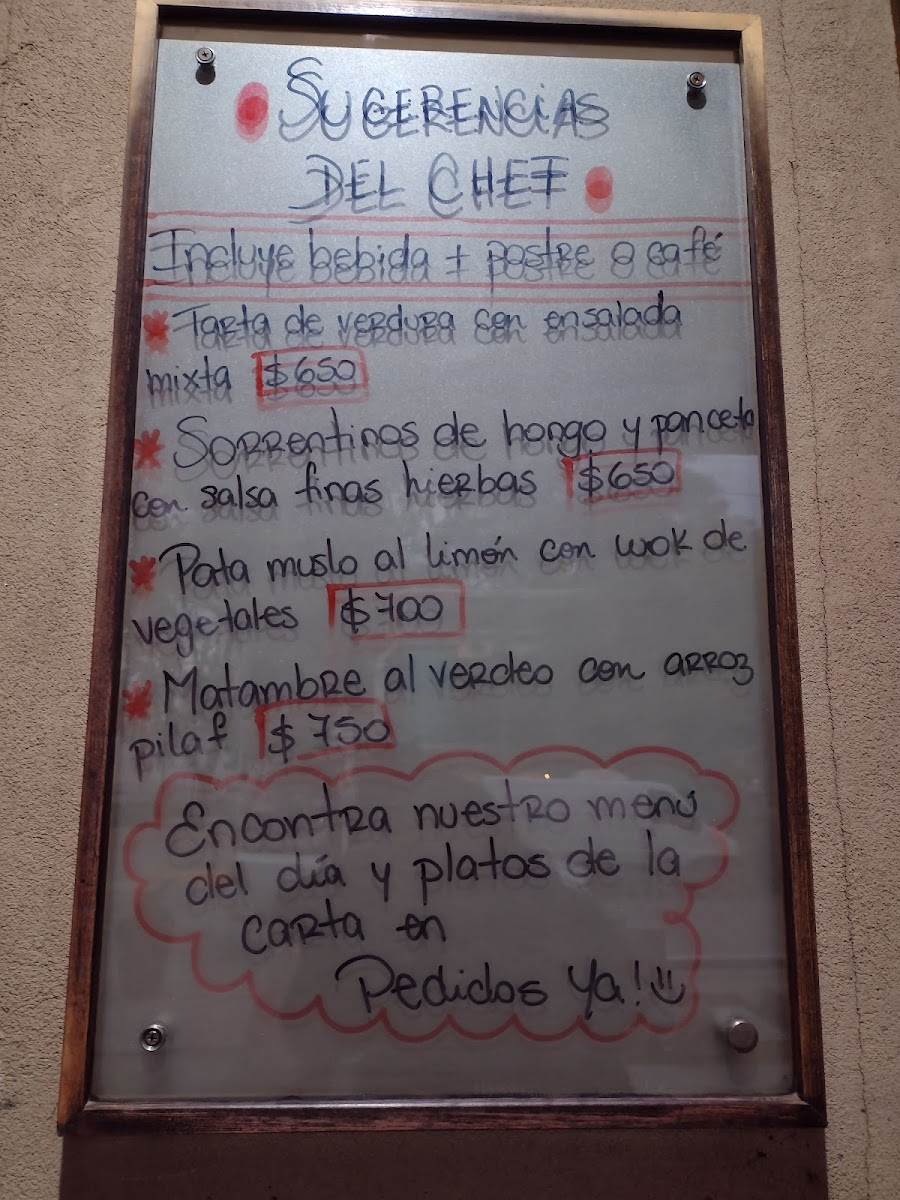 SUGERENCIAS
DEL CHEF
Incluye bebida + postre o café
Tarta de verdura con ensalada
mixta $650
Sorrentinos de hongo y panceta
con salsa finas hierbas $650
Pata muslo al limón con wok de
vegetales $700
Matambre al verdeo con arroz
pilaf $750
Encontra nuestro menú
del día y platos de la
carta en
Pedidos Ya!